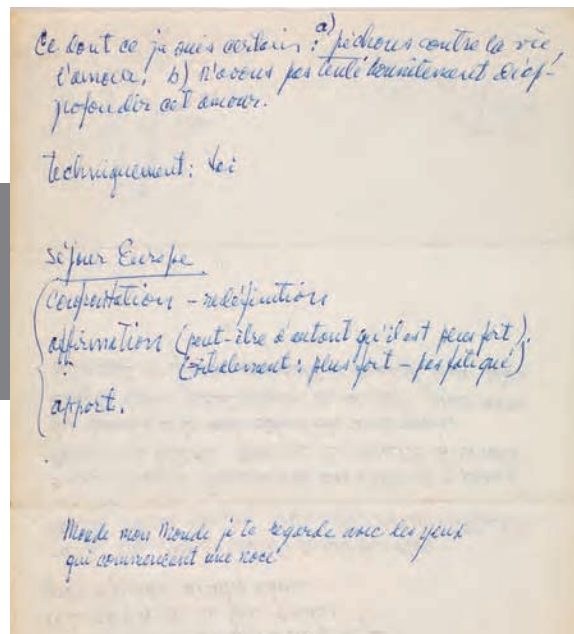 Ce dont ce je suis certain : a) péchons contre la vie,
l'amour. b) n'avons pas tenté honnêtement d'ap-
profondir cet amour.
techniquement :
séjour Europe
confrontation – redéfinition
affirmation (peut-être d'autant qu'il est plus fort).
(vitalement : plus fort – pas fatigué)
apport.
Monde mon Monde je te regarde avec des yeux
qui commencent une noce